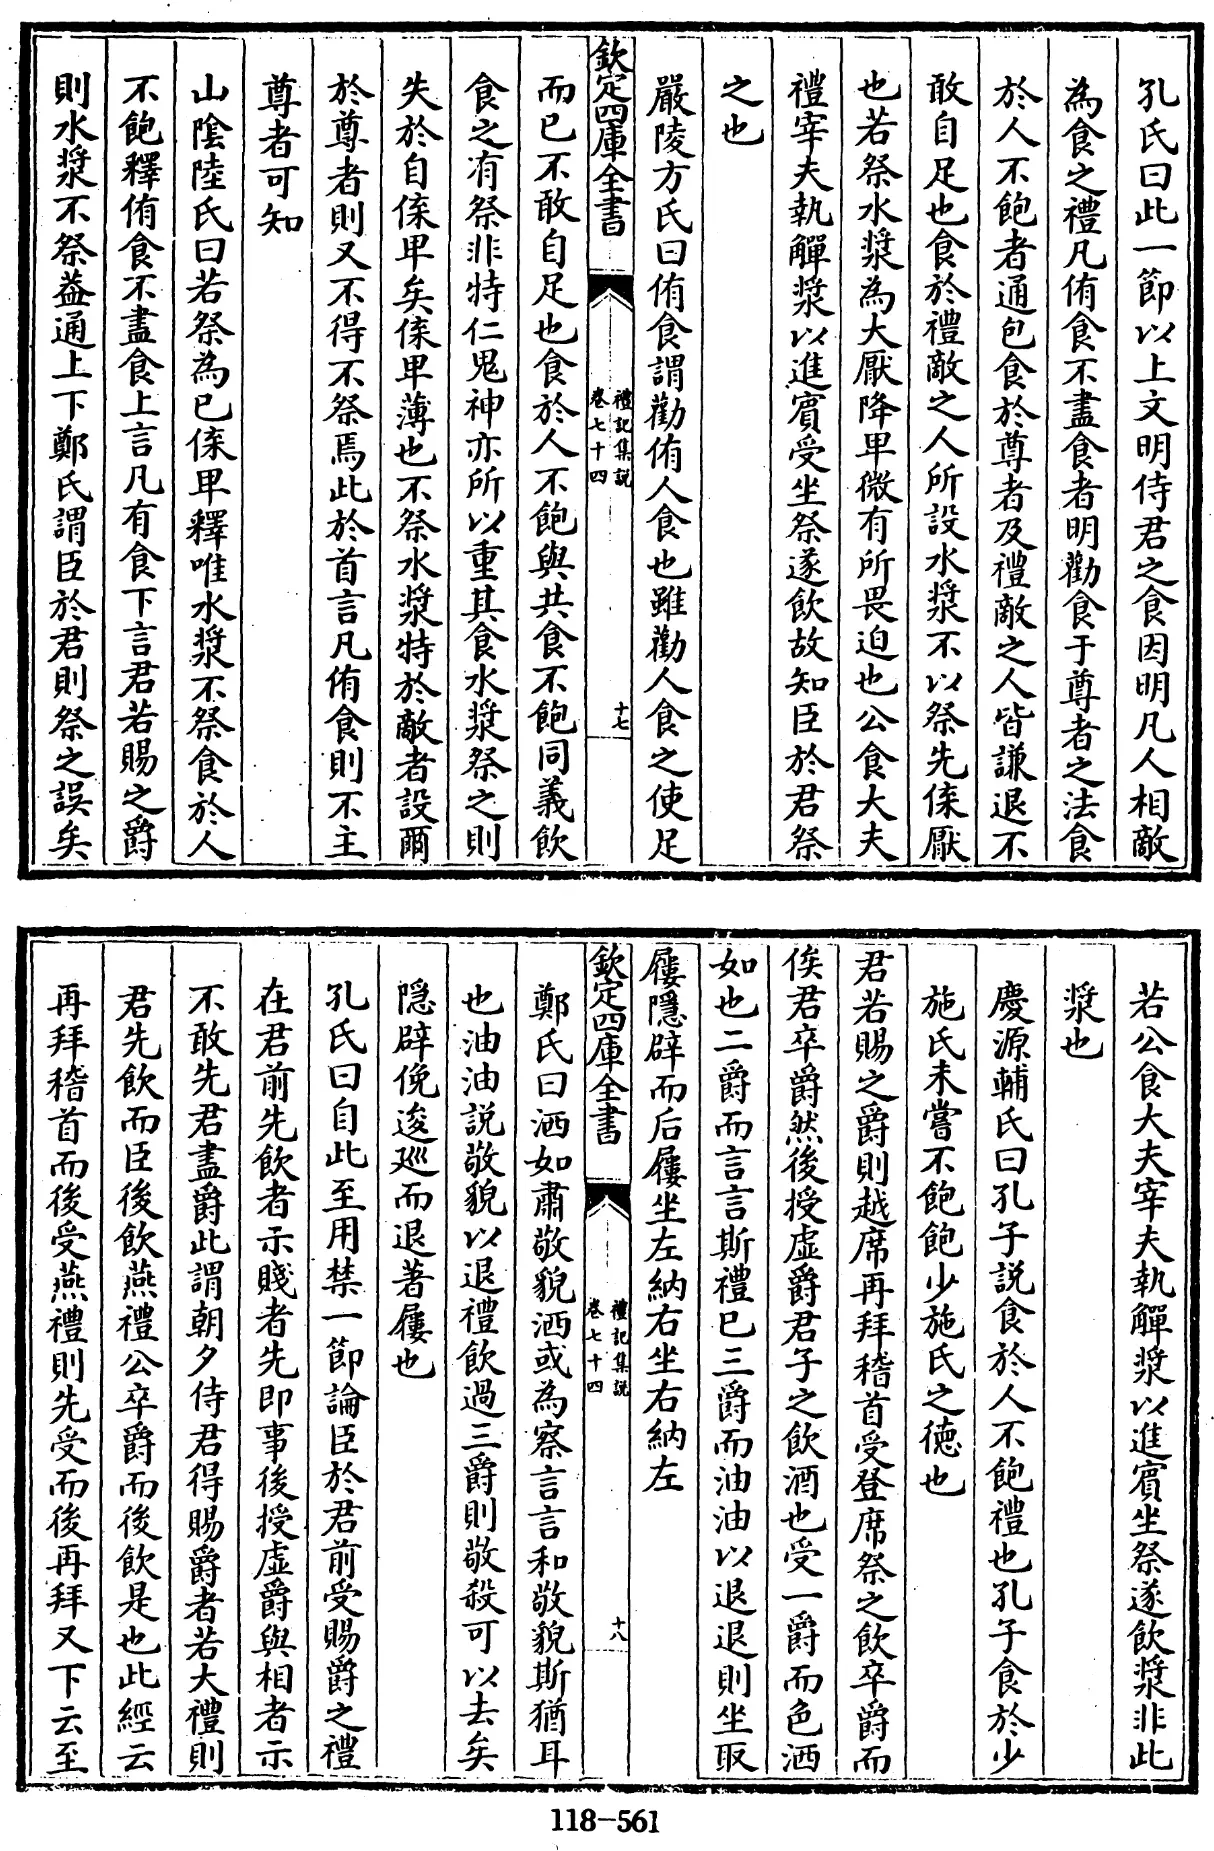 孔氏曰此一節以上文明侍君之食因明凡人相敵
為食之禮凡侑食不盡食者明勸食于尊者之法食
於人不飽者通包食於尊者及禮敵之人皆謙退不
敢自足也食於禮敵之人所設水漿不以祭先傣厭
也若祭水漿為大厭降卑微有所畏迫也公食大夫
禮宰夫執觶漿以進賓受坐祭遂飲故知臣於君祭
之也
嚴陵方氏曰侑食謂勸侑人食也雖勸人食之使足
欽定四庫全書
禮記集說
卷七十四
十七
而已不敢自足也食於人不飽與共食不飽同義飲
食之有祭非特仁鬼神亦所以重其食水漿祭之則
失於自傣卑矣傣卑薄也不祭水漿特於敵者設爾
於尊者則又不得不祭焉此於首言凡侑食則不主
尊者可知
山陰陸氏曰若祭為已傣卑釋唯水漿不祭食於人
不飽釋侑食不盡食上言凡有食下言君若賜之爵
則水漿不祭葢通上下鄭氏謂臣於君則祭之誤矣
若公食大夫宰夫執觶漿以進賓坐祭遂飲漿非此
漿也
慶源輔氏曰孔子說食於人不飽禮也孔子食於少
施氏未嘗不飽飽少施氏之徳也
君若賜之爵則越席再拜稽首受登席祭之飲卒爵而
俟君卒爵然後授虛爵君子之飲酒也受一爵而色洒
如也二爵而言言斯禮已三爵而油油以退退則坐取
屨隱辟而后屨坐左納右坐右納左
欽定四庫全書
禮記集說
卷七十四
十八
鄭氏曰洒如肅敬貌洒或為察言言和敬貌斯猶耳
也油油說敬貌以退禮飲過三爵則敬殺可以去矣
隱辟俛逡巡而退著屨也
孔氏曰自此至用禁一節論臣於君前受賜爵之禮
在君前先飲者示賤者先即事後授虛爵與相者示
不敢先君盡爵此謂朝夕侍君得賜爵者若大禮則
君先飲而臣後飲燕禮公卒爵而後飲是也此經云
再拜稽首而後受燕禮則先受而後再拜又下云至
118-561